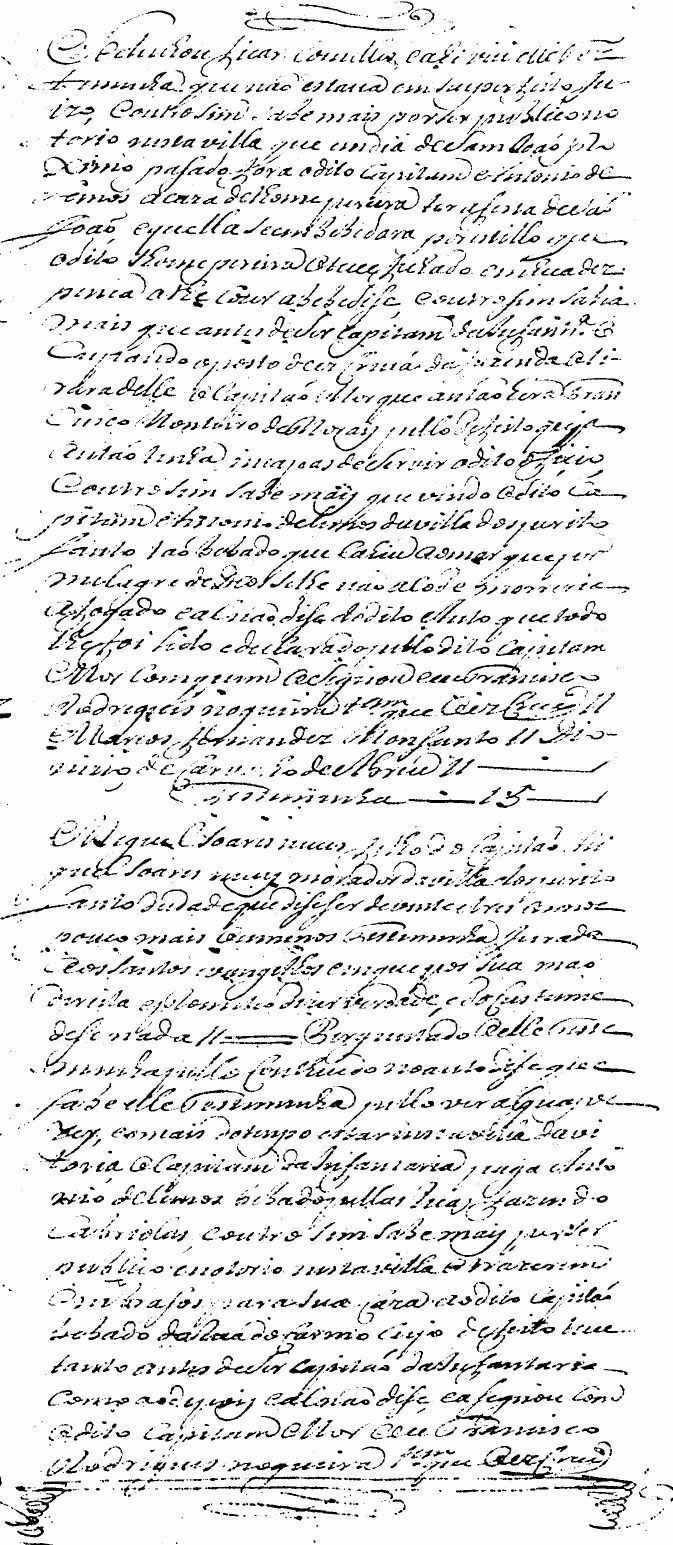 E deichou ficar Comelles, e ahi viu elle tes
temunha que não estava em su perfeito Ju-
izo, Eoutrosim sabe mais por ser publico no
torio nesta villa que em dia de Sam Joaõ pro
ximo pasado fora o dito Capitam Antonio de
lemos a caza de thome pereira ter a festa de saõ
Joaõ, e que lla se embebedara por estillo que
o dito thome pereira o teve fechado em hua des
pensa athe cozer a bebedise, Eoutrosim sabia
mais que antes de ser Capitam da Infantr.ª E
Cupando o posto de escrivaõ da fazenda o ti-
rara delle o Capitaõ Mor que antaõ hera Fran
Cisco Monteiro de Morais pello defeito que ja
antaõ tinha incapas de servir o dito oficio
Eoutrosim sabe mais que vindo o dito Ca
pitam Antonio de lemos da villa do spirito
santo taõ bebado que cahiu ao mar que por
milagre de Deos se lhe naõ acode morreria
afogado e al naõ dise do dito Auto que todo
lhe foi lido e declarado pello dito Capitam
Mor Com quem asignou e eu Francisco
Rodrigues nogueira tam que o escrevy //
Marcos Fernandez Monsanto // Dio-
nizio de Carvalho de Abreu //
Testemunha 15
Miguel soares filho do Capitaõ Mi
guel soares morador da villa do spirito
santo de dade que dise ser de vinte e tres annos
pouco mais ou menos Testemunha Jurada
aos santos evangelhos em que pos sua maõ
direita e prometeo dizer verdade, e do custume
dise nada // Perguntado elle teste
munha pello Contheudo no auto dise que
sabe elle Testemunha pello ver alguas ve
zes, e o mais do tempo estar nesta villa da vi
toria o Capitam da Infantaria paga Anto
nio de lemos bebado pellas ruas fazendo
cabriolas, e outro sim sabe mais por ser
publico e notorio nesta villa o trazerem
em brasos para sua caza ao dito Capitaõ
bebado da rua do Carmo Cujo defeito teve
tanto antes de ser Capitaõ da Infantaria
Como ao depois e al naõ dise, e asignou Com
o dito Capitam Mor e eu Francisco
Rodrigues nogueira tam que o escrevy